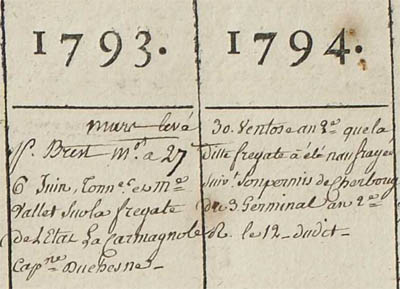 1793.
1794.
murs levé
Pr. Brest Mn. a 27
6 Juin, Tonn.r es me
Vallet Sur la fregate
de L'Etat La Carmagnole
Cap.ne Duchesne
30. Ventose an 2e que la
ditte fregate à été naufragée
Suiv.t Son permis de Cherbourg
du 3. Germinal an 2e
R. le 12 dudit